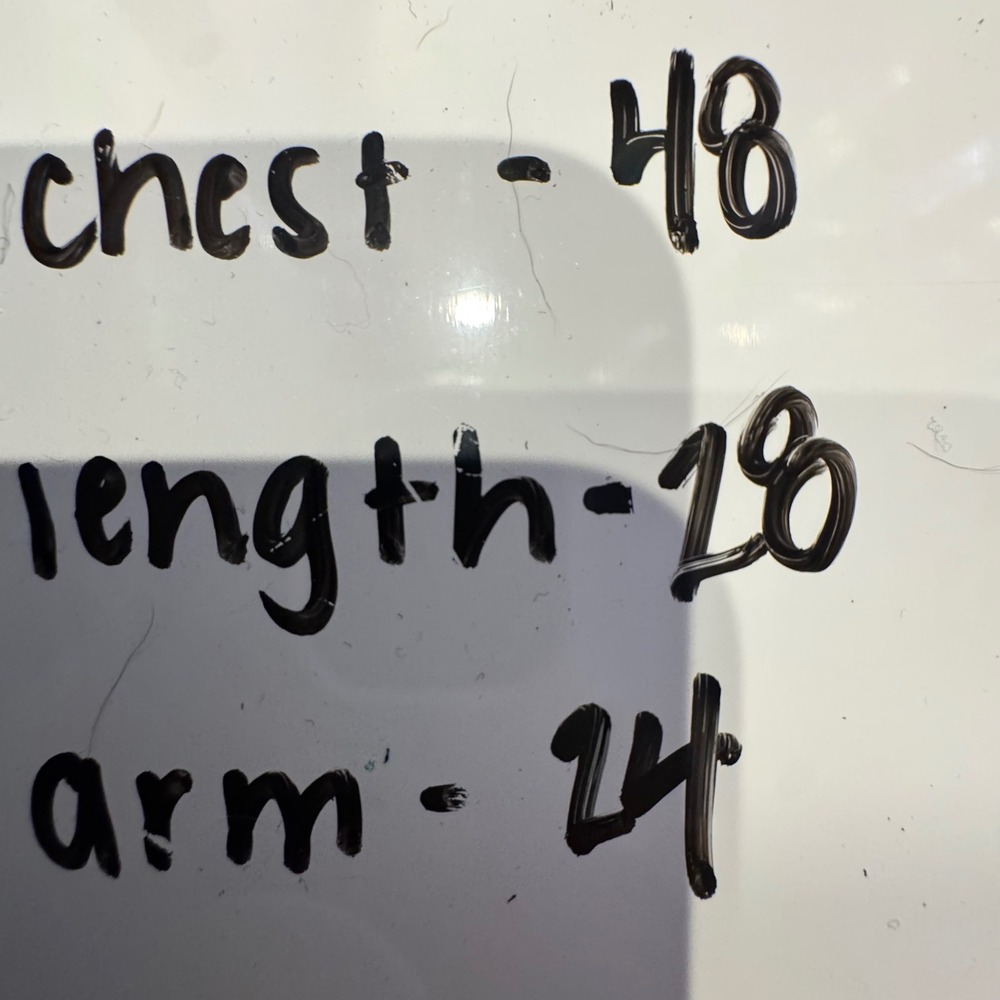 chest - 48
length - 28
arm - 24